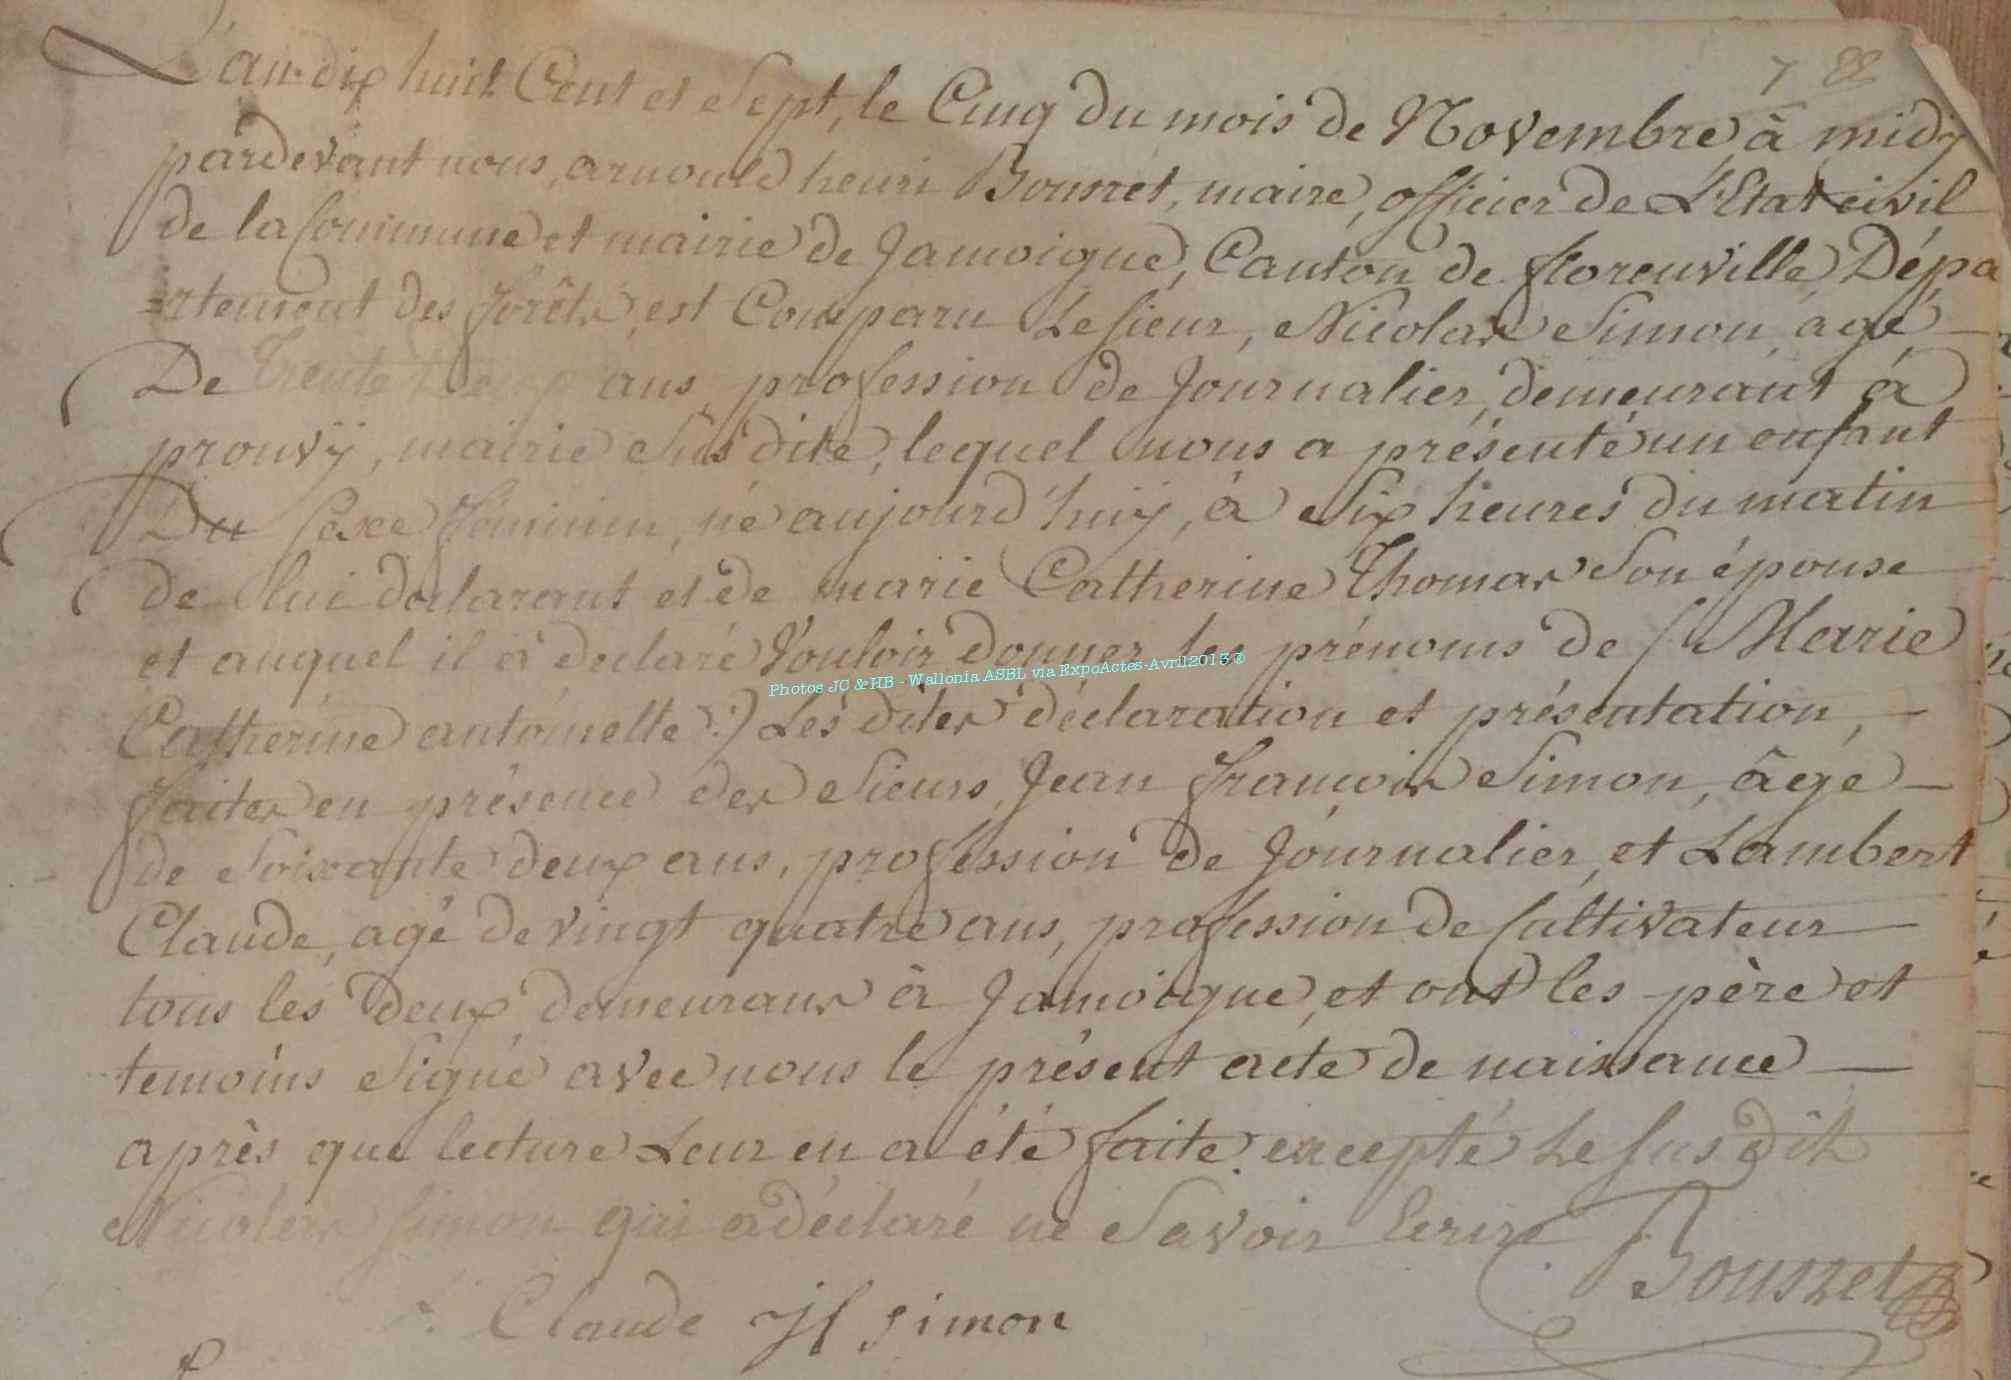 7 88
L'an dix huit Cent et Sept, le Cinq du mois de Novembre, à midÿ
pardevant nous, arnould henri Bousret, maire, officier de L'Etat civil
de la Commune et mairie de Jamoigne, Canton de florenville, Dépa
=rtement des forêts, est Comparu Le Sieur, Nicolas Simon, agé
De Trente ans, profession de Journalier, demeurant à
prouvÿ, mairie Susdite, lequel nous a présenté un enfant
Du Sexe féminin, né aujourd'huÿ, à Six heures du matin
de lui déclarant et de marie Catherine Thomas Son épouse
et auquel il à declaré Vouloir donner les prénoms de (Marie
Catherine antoinette:) Les dites déclaration et présentation,
faites en présence des Sieurs, Jean françois Simon, âgé
de Soixante deux ans, profession de Journalier, et Lambert
Claude, agé de vingt quatre ans, profession de Cultivateur
tous les deux demeurans à Jamoigne, et ont les père et
temoins Signé avec nous le présent acte de naissance
après que lecture Leur en a été faite. excepté Le Susdit
Nicolas Simon qui a déclaré ne Savoir Ecrire
Bousret
Claude Jf simon
Photos JC & HB - Wallonia ASBL via ExpoActes-Avril2013®